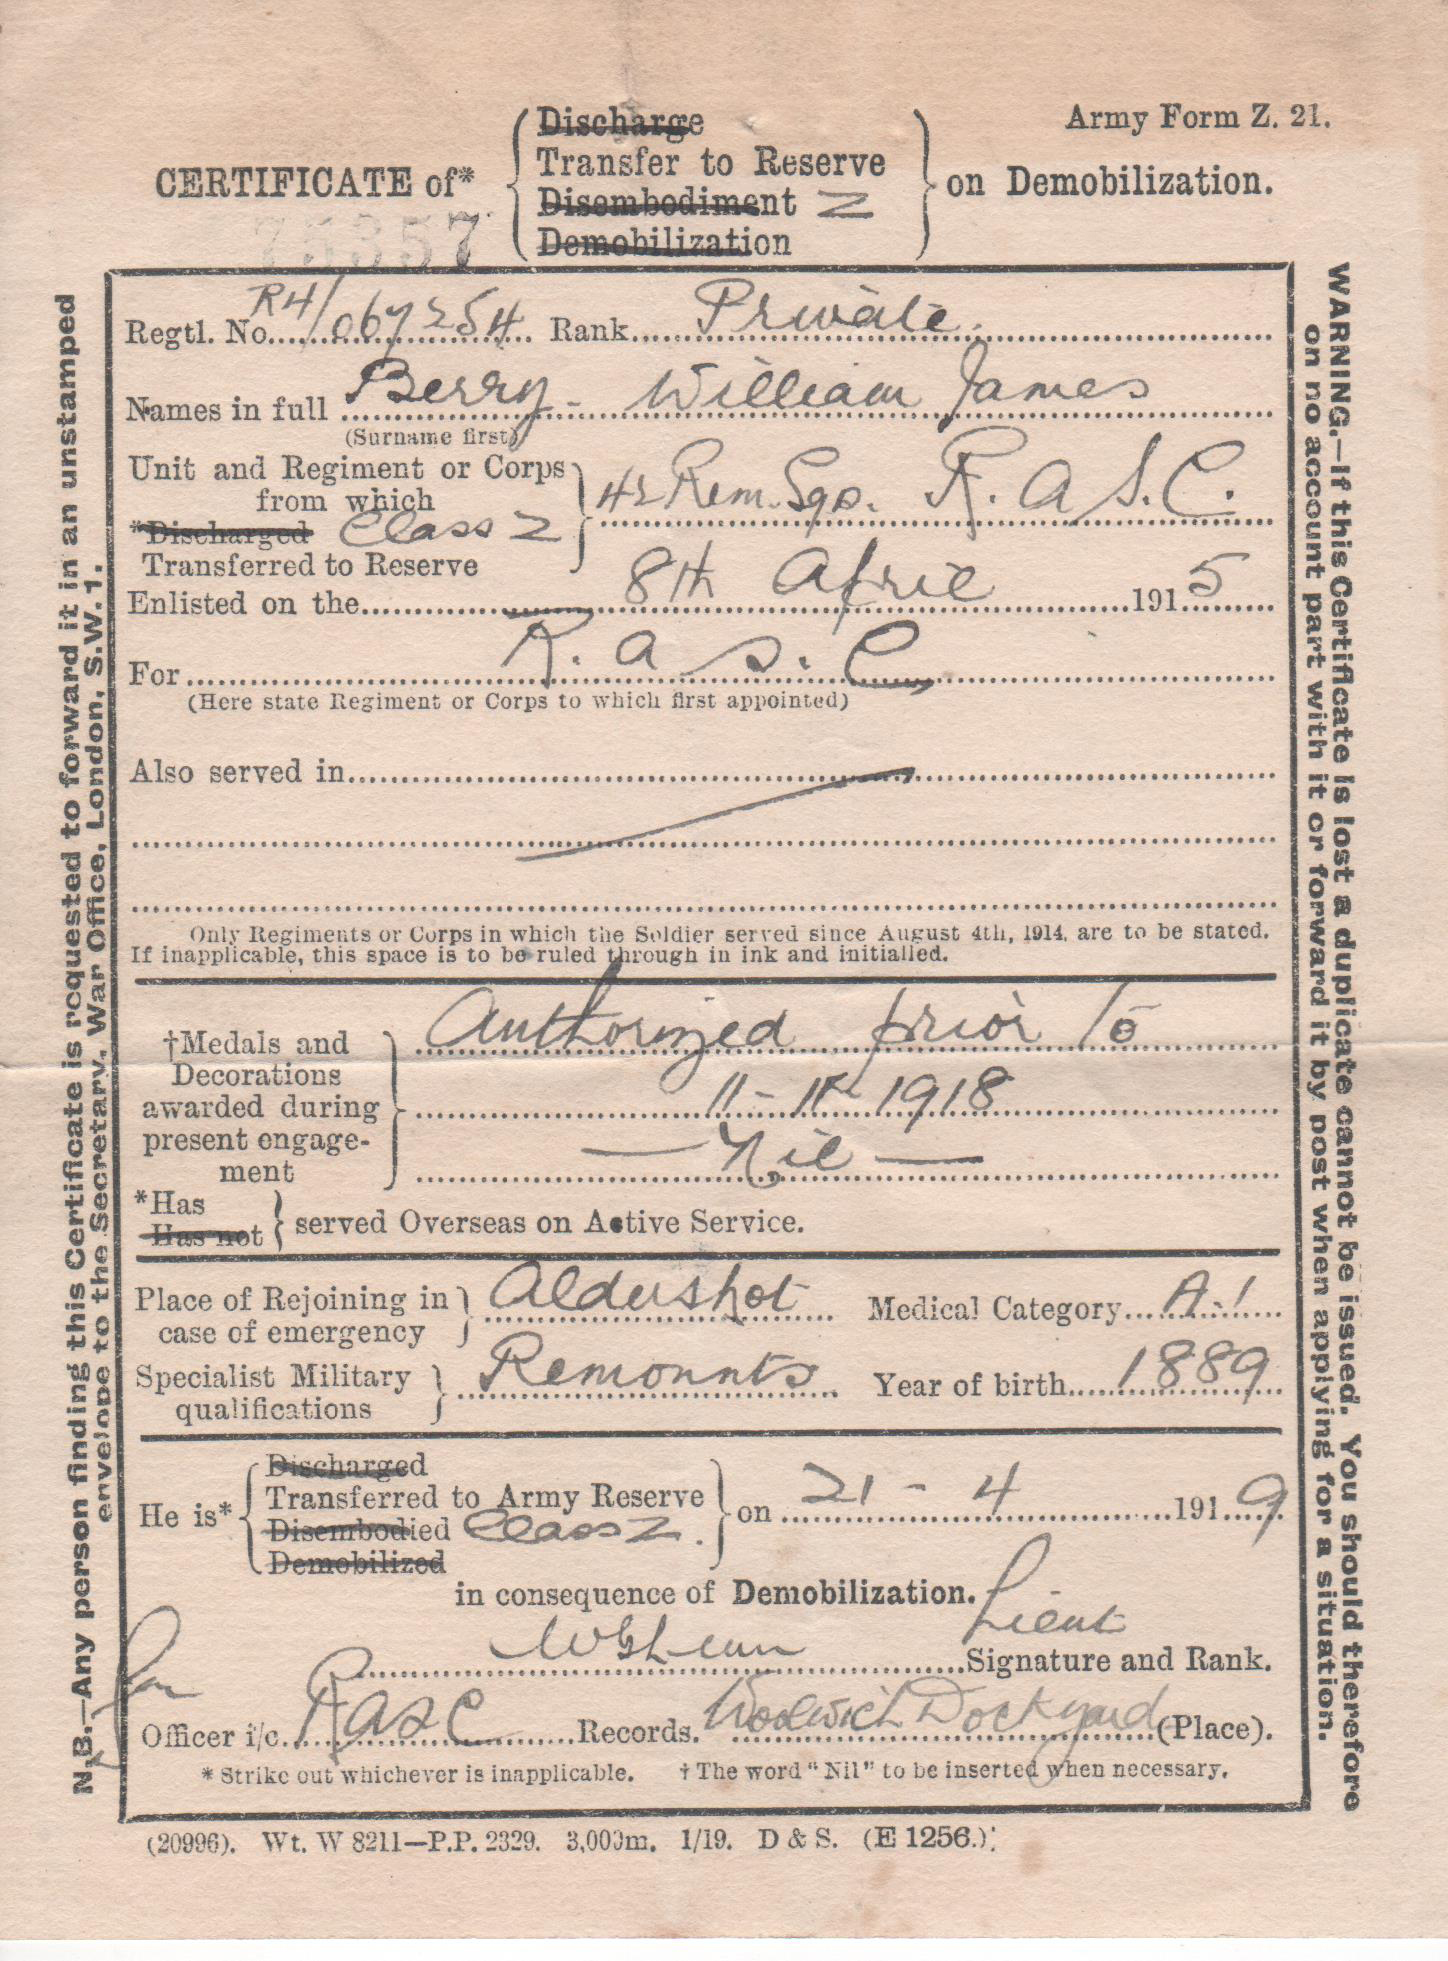 Army Form Z. 21.
CERTIFICATE of*
Discharge
Transfer to Reserve
Disembodiment Z
Demobilization
on Demobilization.
75357
Regtl. No. R4/067254 Rank Private
Names in full Berry - William James
(Surname first)
Unit and Regiment or Corps
from which
*Discharged Class Z
Transferred to Reserve
42 Rem. Sqd. R.A.S.C.
Enlisted on the 8th April 1915
For R.A.S.C
(Here state Regiment or Corps to which first appointed)
Also served in
Only Regiments or Corps in which the Soldier served since August 4th, 1914, are to be stated.
If inapplicable, this space is to be ruled through in ink and initialled.
†Medals and
Decorations
awarded during
present engage-
ment
Authorized prior to
11-11-1918
— Nil —
*Has
Has not
served Overseas on Active Service.
Place of Rejoining in
case of emergency
Aldershot Medical Category A.1
Specialist Military
qualifications
Remounts Year of birth 1889
He is*
Discharged
Transferred to Army Reserve
Disembodied Class Z.
Demobilized
on 21-4 1919
in consequence of Demobilization.
Lieut
Signature and Rank.
for
Officer i/c. RASC Records. Woolwich Dockyard (Place).
* Strike out whichever is inapplicable. † The word "Nil" to be inserted when necessary.
(20996). Wt. W 8211—P.P. 2329. 3,000m. 1/19. D & S. (E 1256.)
N.B.—Any person finding this Certificate is requested to forward it in an unstamped
envelope to the Secretary, War Office, London, S.W. 1.
WARNING.—If this Certificate is lost a duplicate cannot be issued. You should therefore
on no account part with it or forward it by post when applying for a situation.